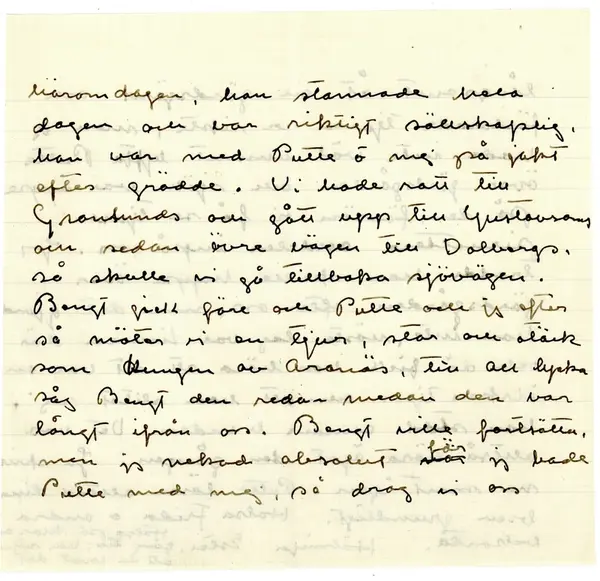 häromdagen, han stannade hela
dagen och var riktigt sällskaplig,
han var med Putte o mej på jakt
efter grädde. Vi hade rott till
Granlunds och gått upp till Gustavsons
och sedan övre vägen till Dalbergs,
så skulle vi gå tillbaka sjövägen.
Bengt gick före och Putte och jg efter
så möter vi en tjur, stor och stark
som Kungen av Aranäs, till all lycka
såg Bengt den redan medan den var
långt ifrån oss. Bengt ville fortsätta,
men jg nekad absolut för jg hade
Putte med mej, så drog vi oss